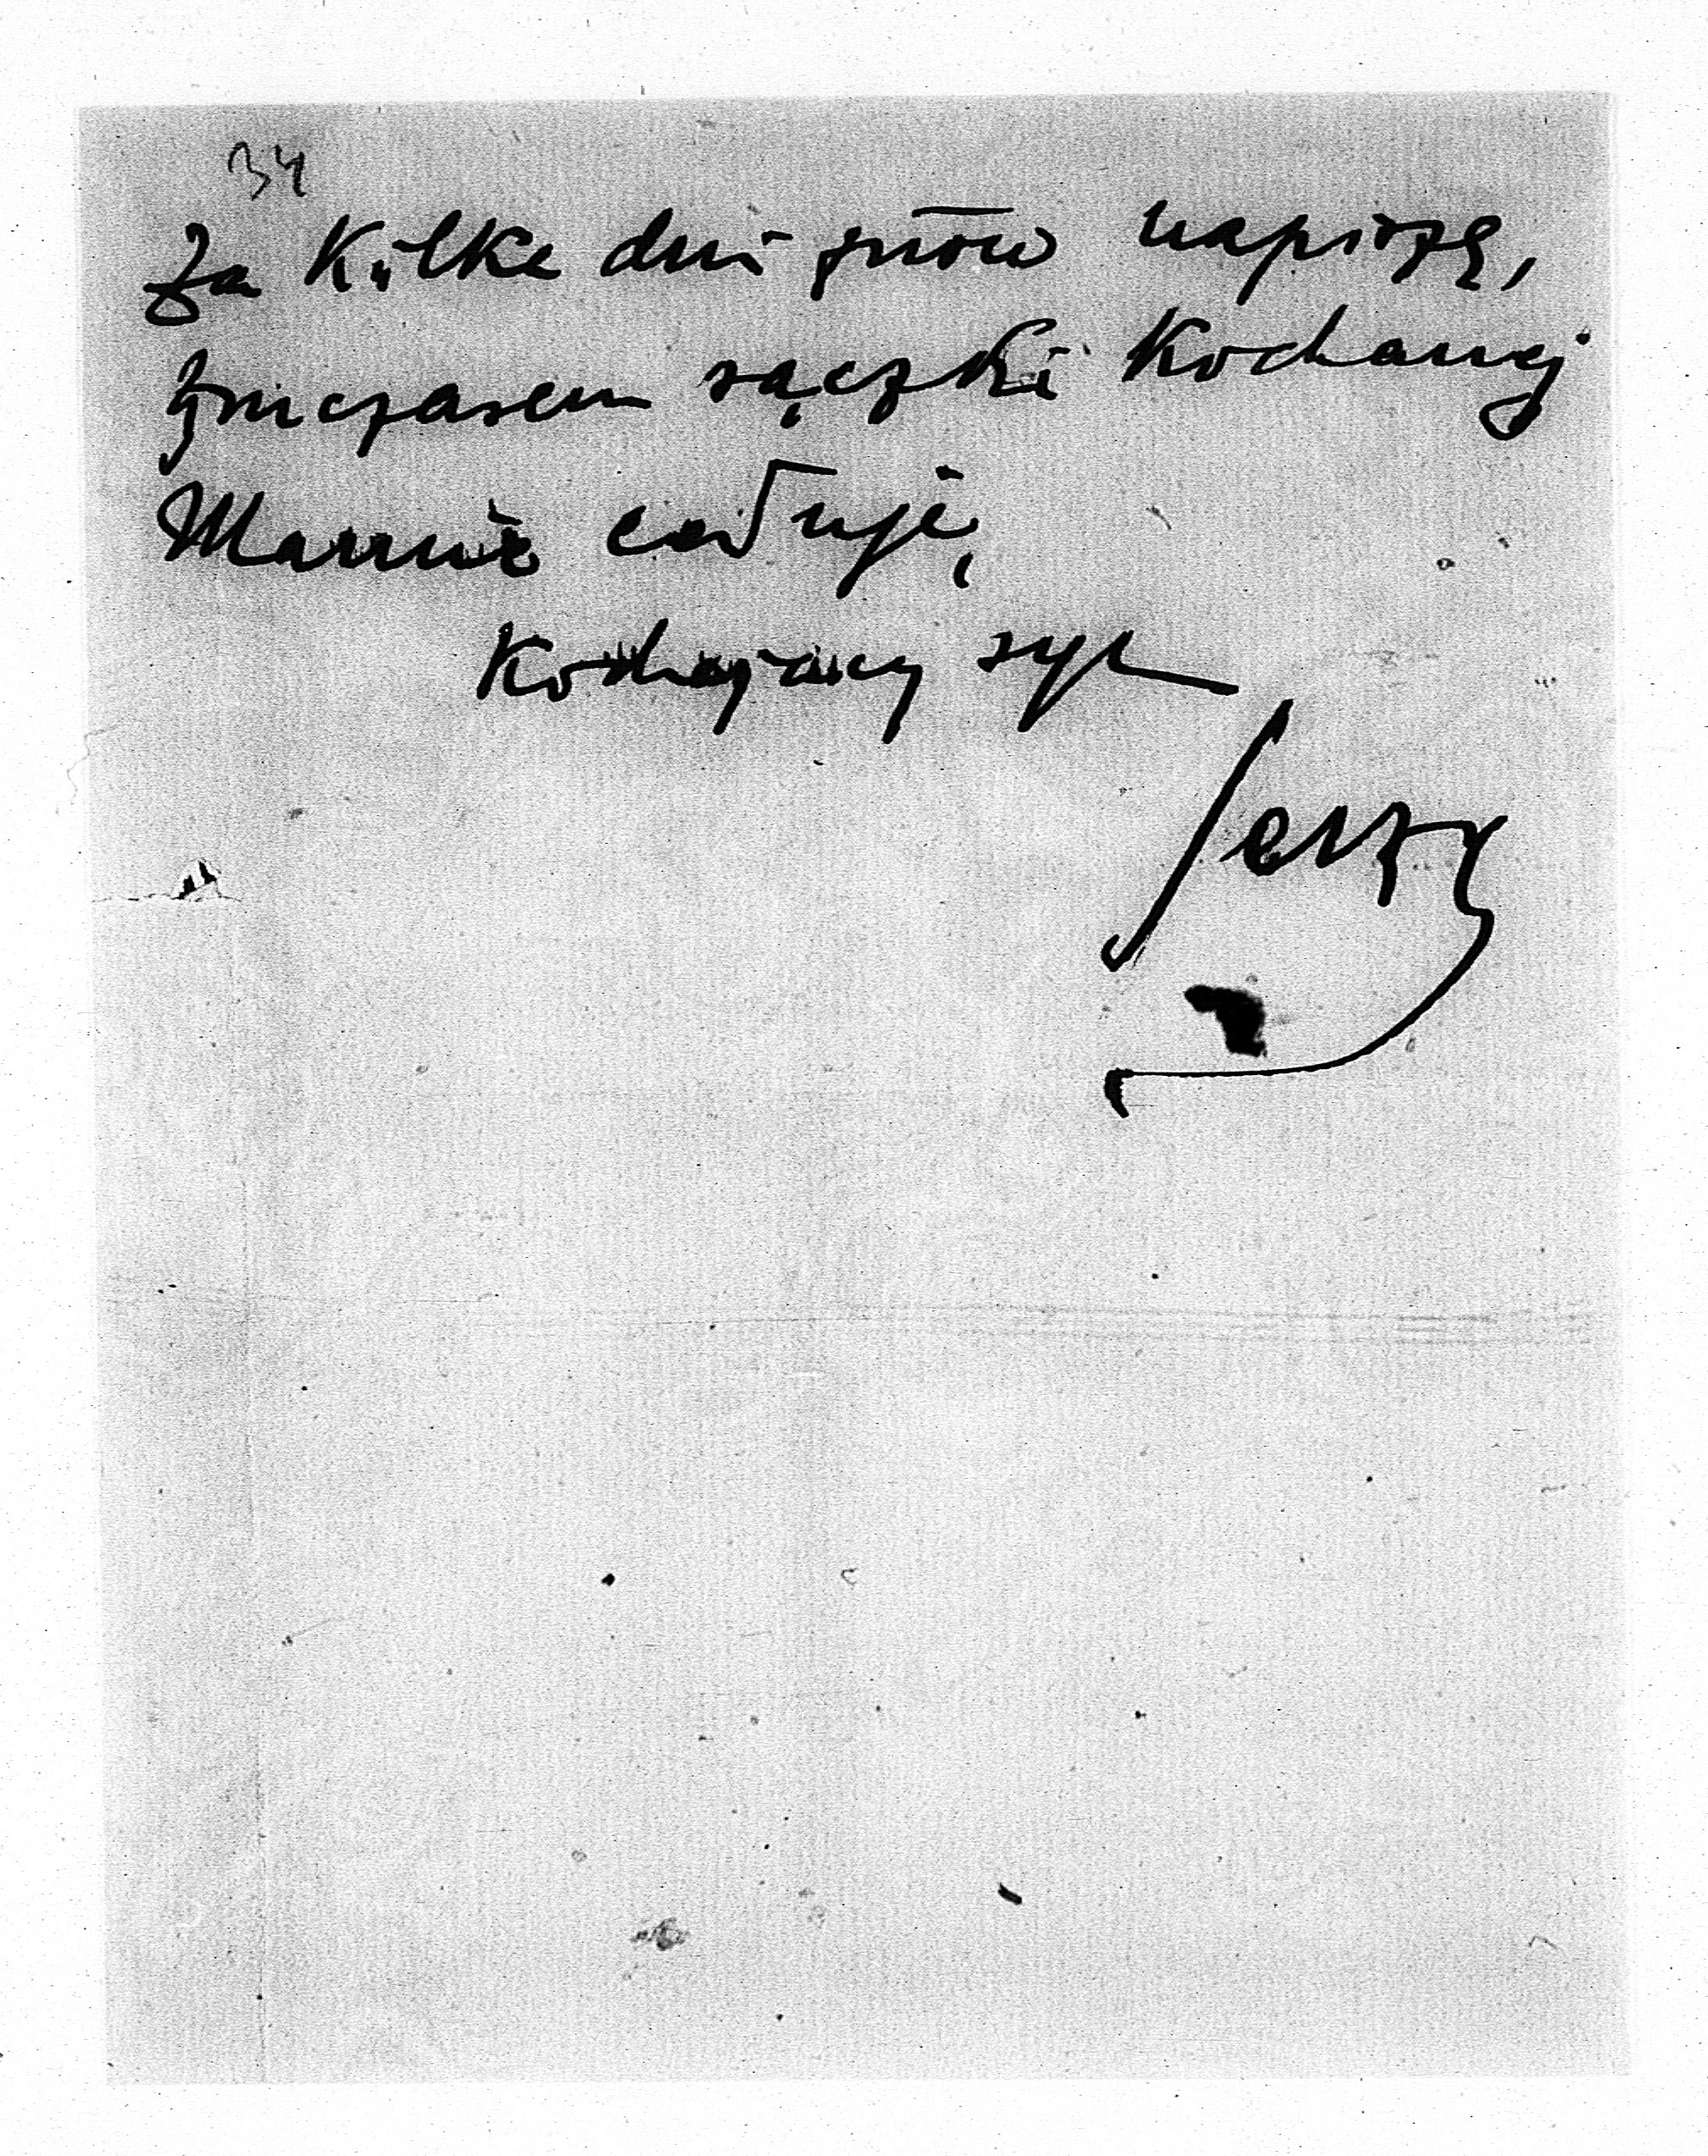 34
Za Kilka dni znów napiszę,
tymczasem rączki Kochanej
Mamie całuję,
Kochający syn
Jerzy